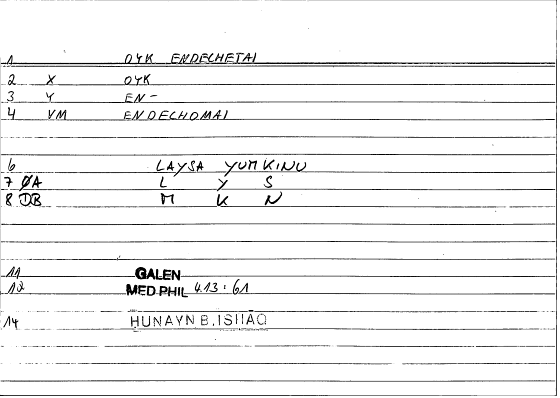 1 OYK ENDECHETAI
2 X OYK
3 Y EN-
4 VM ENDECHOMAI
6 LAYSA YUMKINU
7 ØA L Y S
8 ⒹB M K N
11 GALEN
12 MED PHIL 4.13 : 61
14 HUNAYN B. ISHAQ